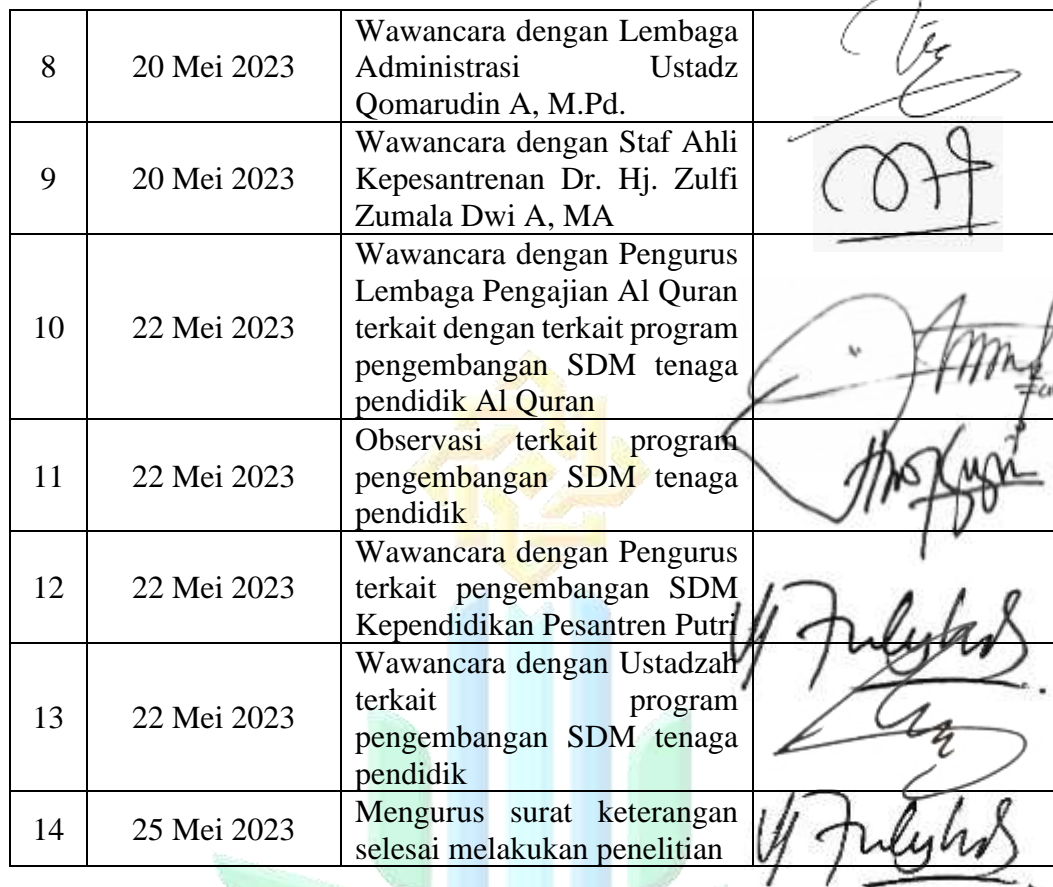 8 20 Mei 2023 Wawancara dengan Lembaga
Administrasi Ustadz
Qomarudin A, M.Pd.
9 20 Mei 2023 Wawancara dengan Staf Ahli
Kepesantrenan Dr. Hj. Zulfi
Zumala Dwi A, MA
10 22 Mei 2023 Wawancara dengan Pengurus
Lembaga Pengajian Al Quran
terkait dengan terkait program
pengembangan SDM tenaga
pendidik Al Quran
11 22 Mei 2023 Observasi terkait program
pengembangan SDM tenaga
pendidik
12 22 Mei 2023 Wawancara dengan Pengurus
terkait pengembangan SDM
Kependidikan Pesantren Putri
13 22 Mei 2023 Wawancara dengan Ustadzah
terkait program
pengembangan SDM tenaga
pendidik
14 25 Mei 2023 Mengurus surat keterangan
selesai melakukan penelitian